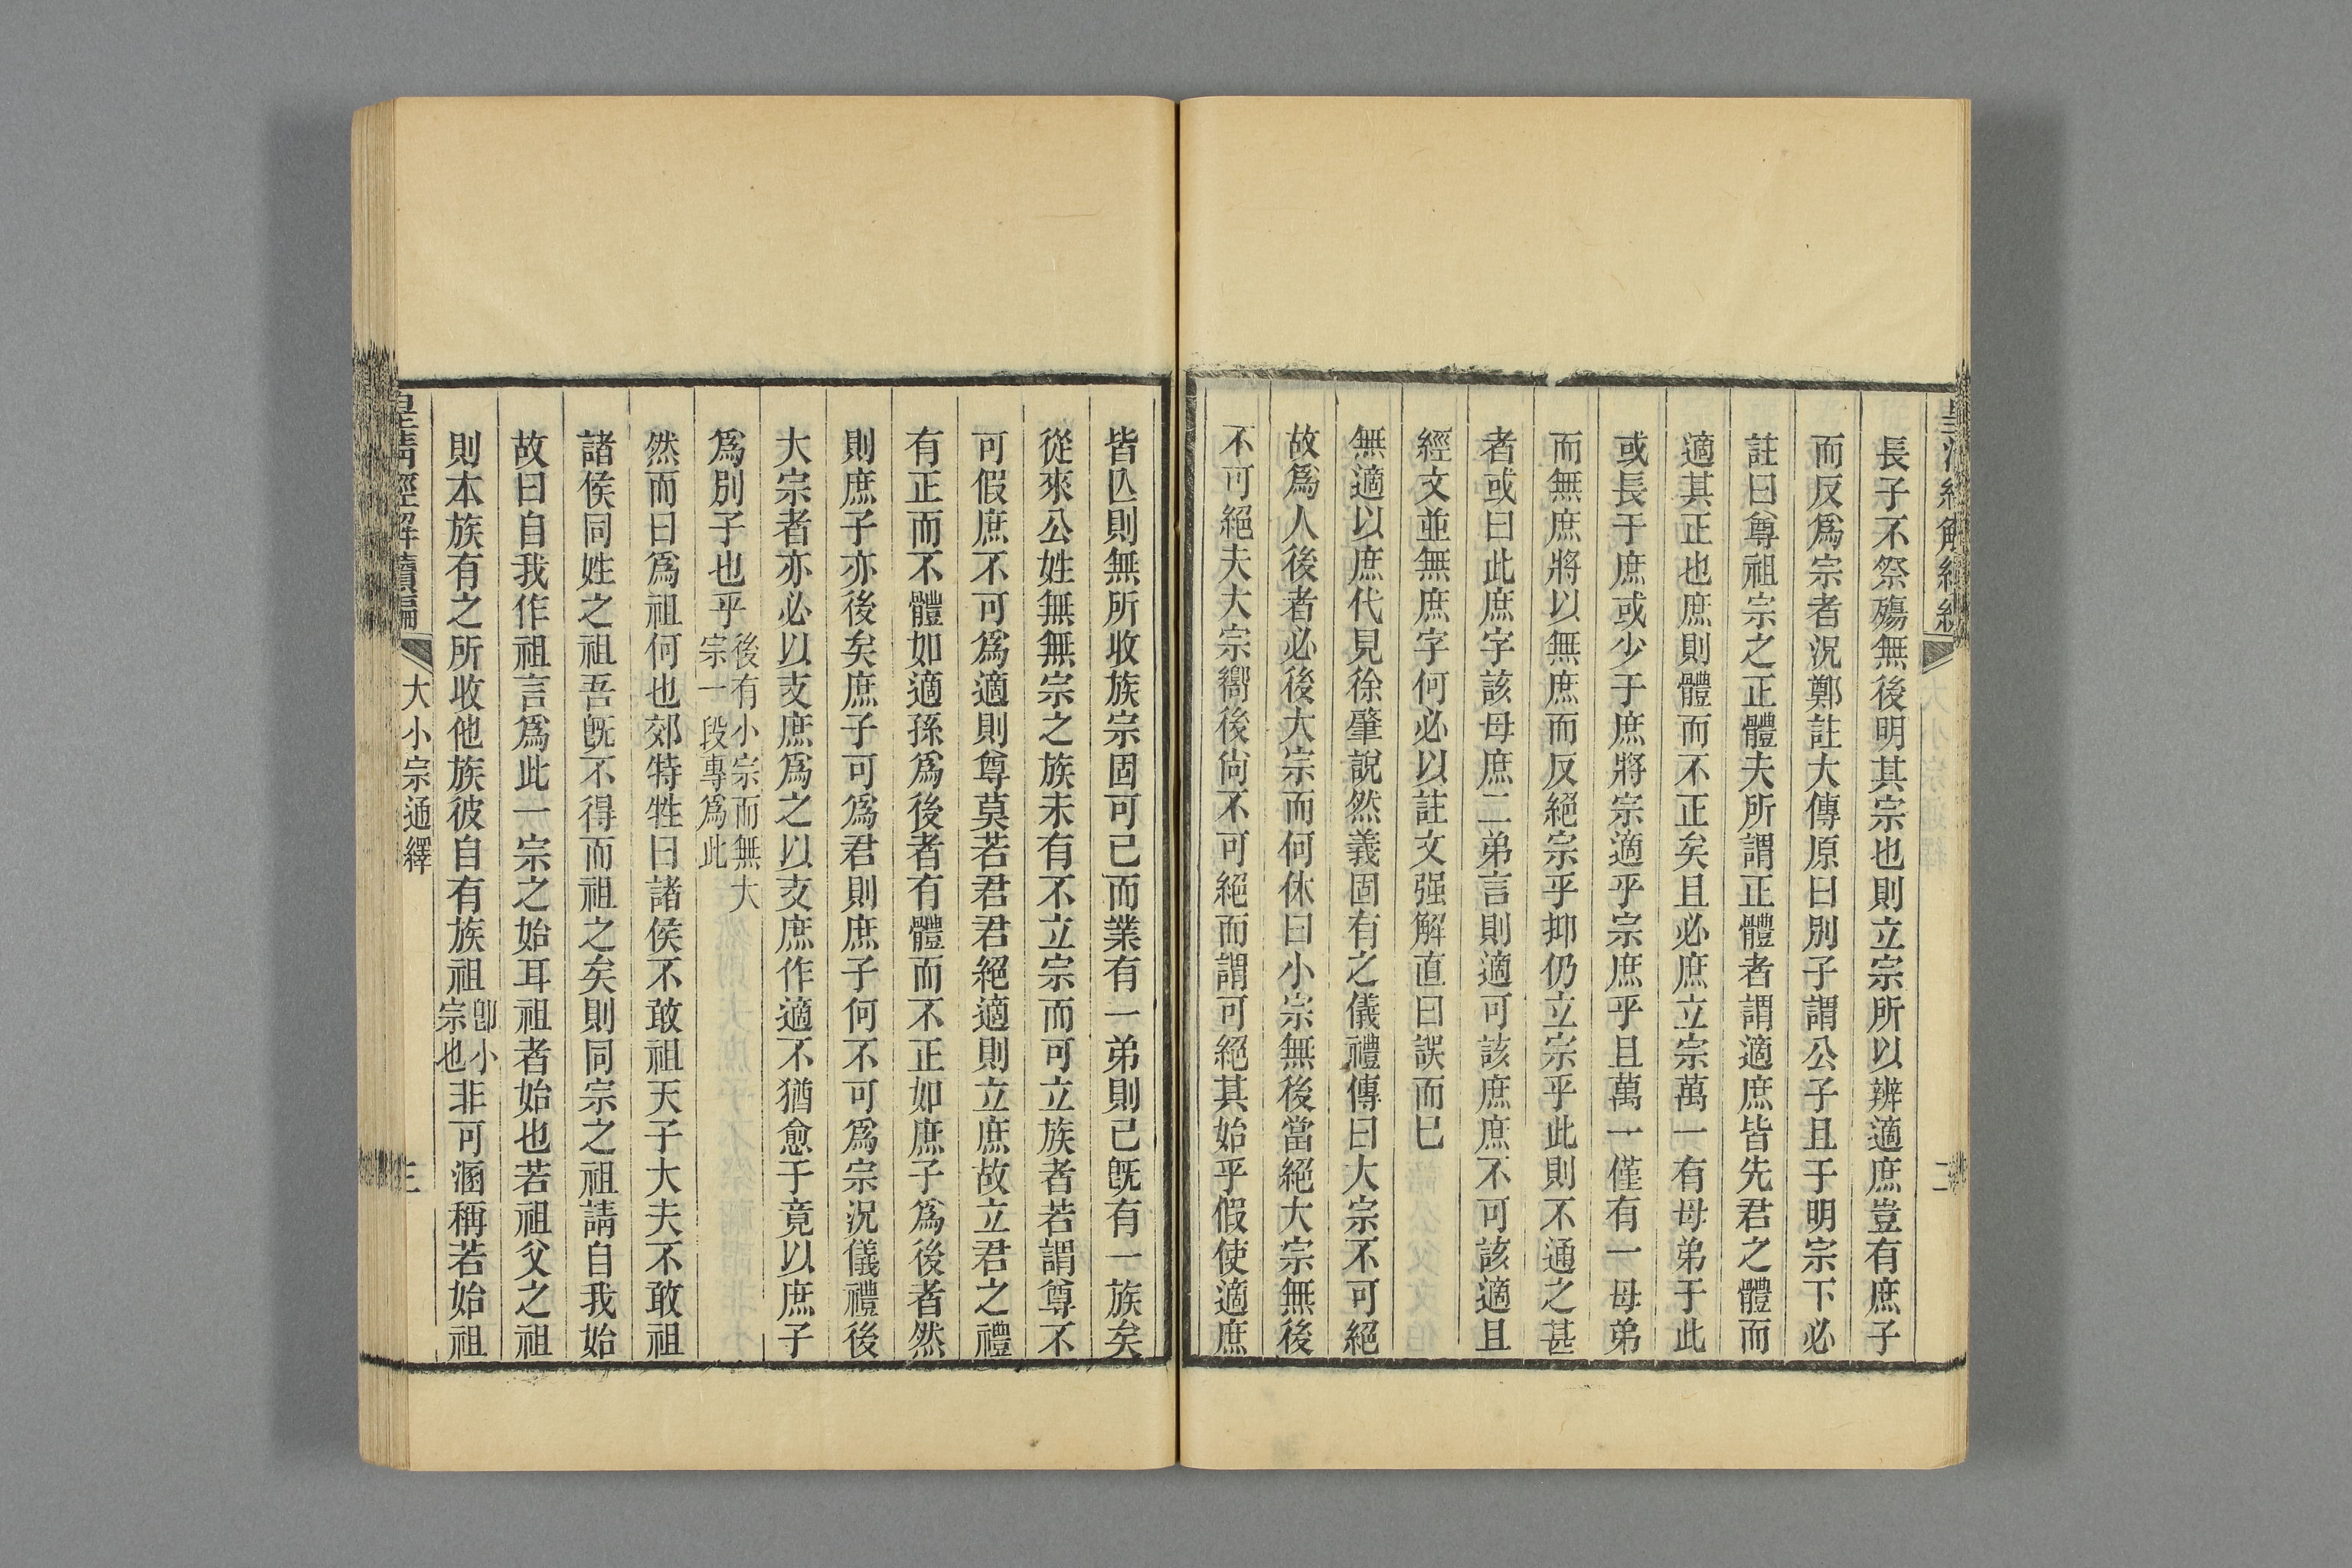 長子不祭殤無後明其宗也則立宗所以辨適庶豈有庶子
而反爲宗者況鄭註大傳原曰別子謂公子且于明宗下必
註曰尊祖宗之正體夫所謂正體者謂適庶皆先君之體而
適其正也庶則體而不正矣且必庶立宗萬一有母弟于此
或長于庶或少于庶將宗適乎宗庶乎且萬一僅有一母弟
而無庶將以無庶而反絕宗乎抑仍立宗乎此則不通之甚
者或曰此庶字該母庶二弟言則適可該庶庶不可該適且
經文並無庶字何必以註文强解直曰誤而已
無適以庶代見徐肇說然義固有之儀禮傳曰大宗不可絕
故爲人後者必後大宗而何休曰小宗無後當絕大宗無後
不可絕夫大宗嚮後尙不可絕而謂可絕其始乎假使適庶
皆亾則無所收族宗固可已而業有一弟則已旣有一族矣
從來公姓無無宗之族未有不立宗而可立族者若謂尊不
可假庶不可爲適則尊莫若君君絕適則立庶故立君之禮
有正而不體如適孫爲後者有體而不正如庶子爲後者然
則庶子亦後矣庶子可爲君則庶子何不可爲宗況儀禮後
大宗者亦必以支庶爲之以支庶作適不猶愈于竟以庶子
爲別子也乎後有小宗而無大宗一段專爲此
然而曰爲祖何也郊特牲曰諸侯不敢祖天子大夫不敢祖
諸侯同姓之祖吾旣不得而祖之矣則同宗之祖請自我始
故曰自我作祖言爲此一宗之始耳祖者始也若祖父之祖
則本族有之所收他族彼自有族祖卽小宗也非可溷稱若始祖
皇淸經解續編
大小宗通繹
三